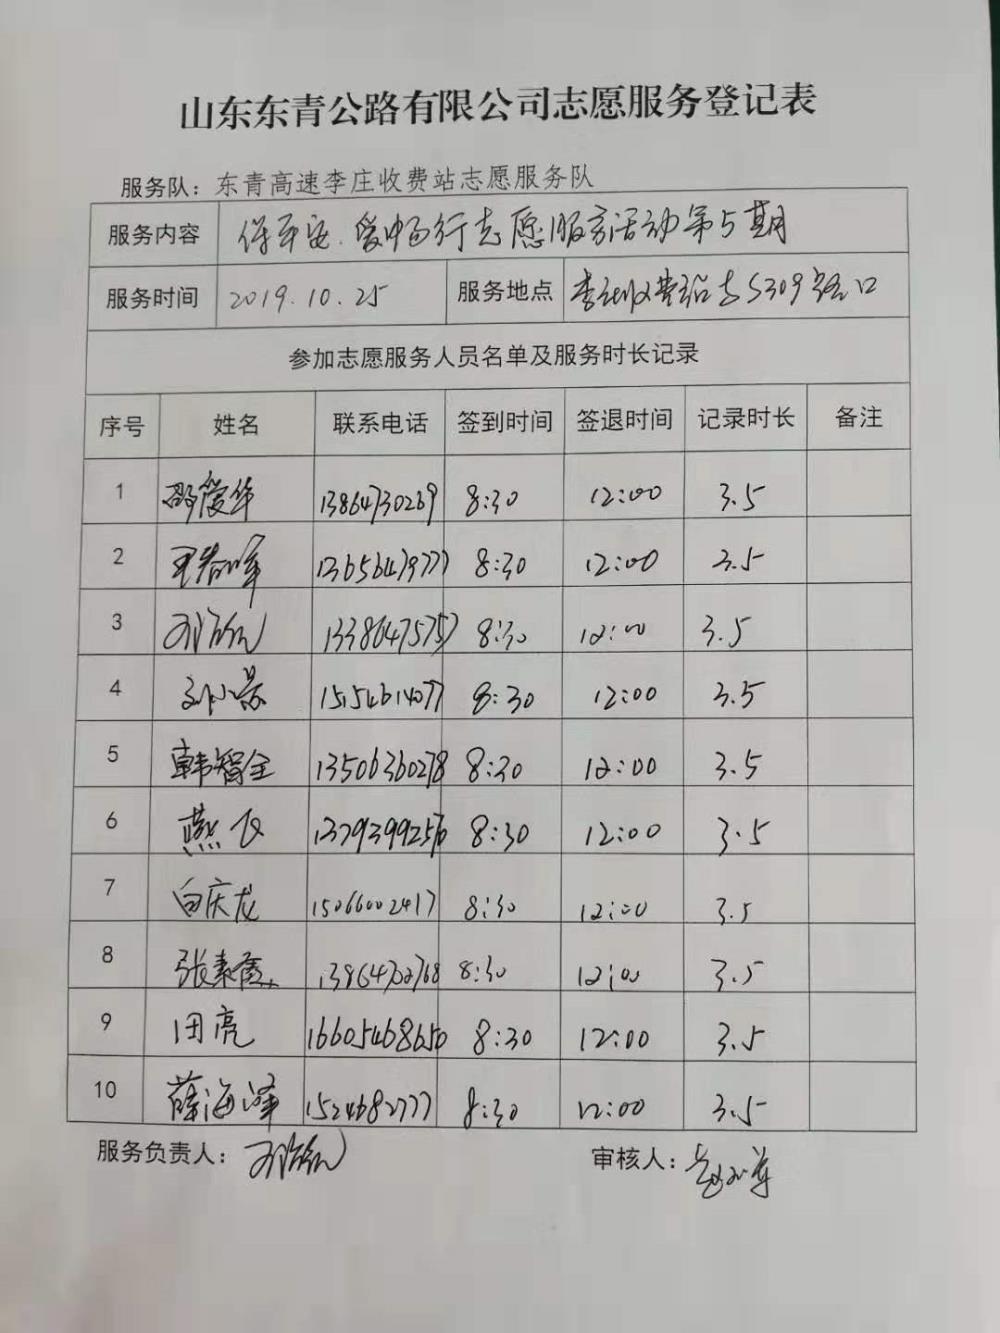 山东东青公路有限公司志愿服务登记表
服务队：东青高速李庄收费站志愿服务队
服务内容 保平安、爱畅行志愿服务活动第5期
服务时间 2019.10.25 服务地点 S309路口
参加志愿服务人员名单及服务时长记录
序号 姓名 联系电话 签到时间 签退时间 记录时长 备注
1 邵爱华 13864730269 8:30 12:00 3.5
2 王春峰 13656479777 8:30 12:00 3.5
3 13386475757 8:30 12:00 3.5
4 刘小荣 15154614077 8:30 12:00 3.5
5 韩智全 13506360278 8:30 12:00 3.5
6 燕飞 13793992576 8:30 12:00 3.5
7 白庆龙 15066002417 8:30 12:00 3.5
8 张素霞 13864702768 8:30 12:00 3.5
9 田亮 16605468650 8:30 12:00 3.5
10 薛海峰 1524682777 8:30 12:00 3.5
服务负责人： 审核人：